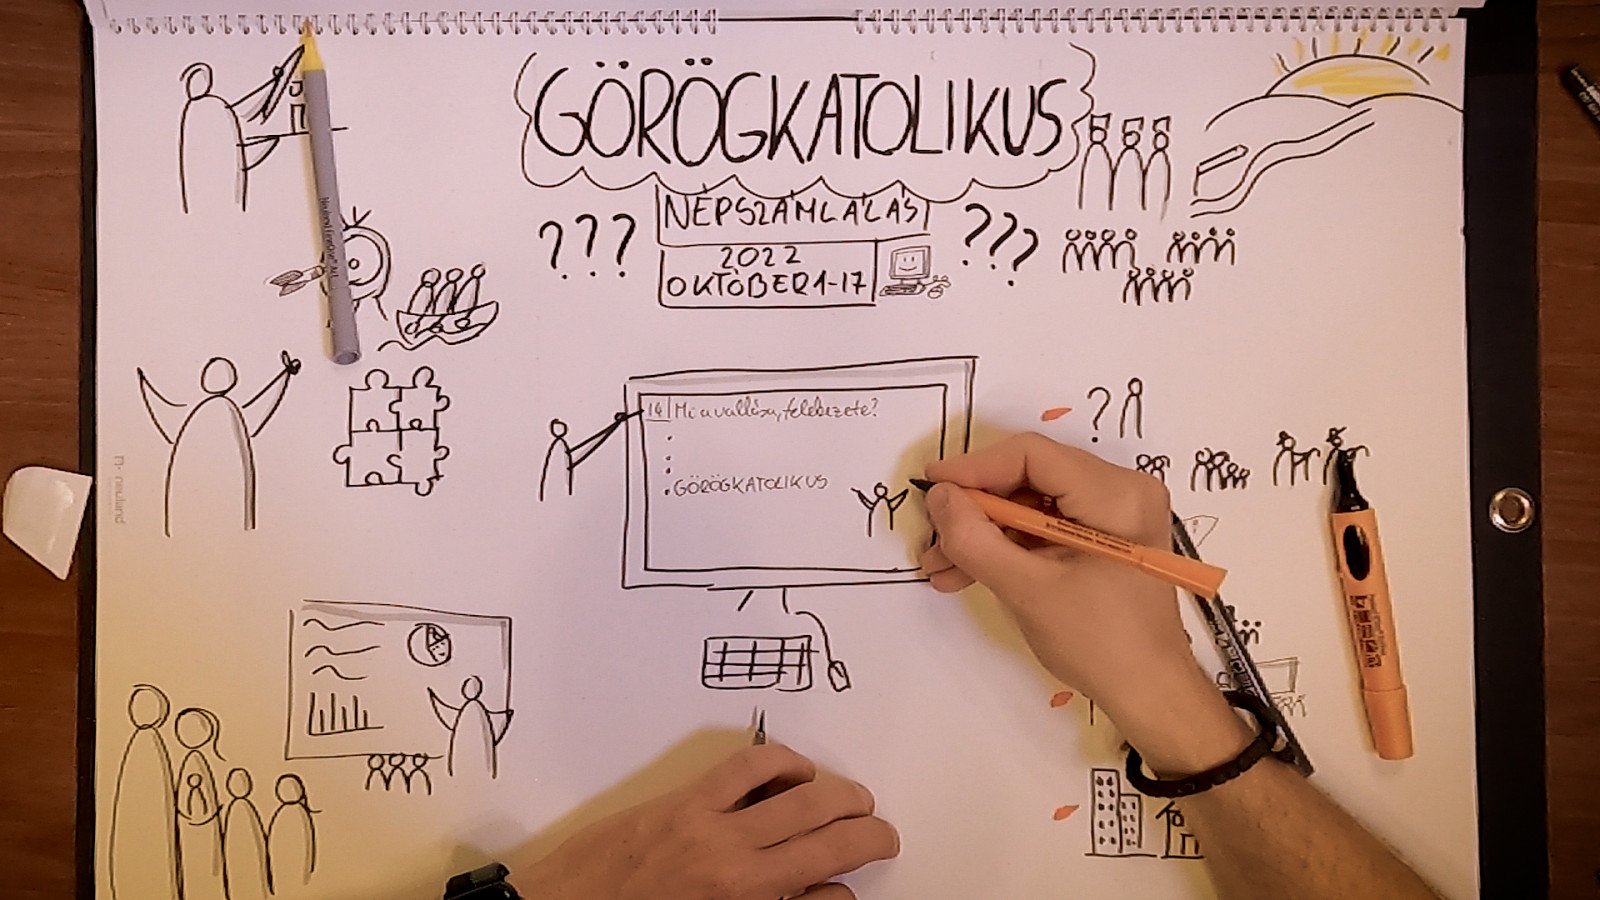 GÖRÖGKATOLIKUS
NÉPSZÁMLÁLÁS
??? 
???
2022
OKTÓBER 1-17
14 Mi a vallása, felekezete?
GÖRÖGKATOLIKUS
?
neuland